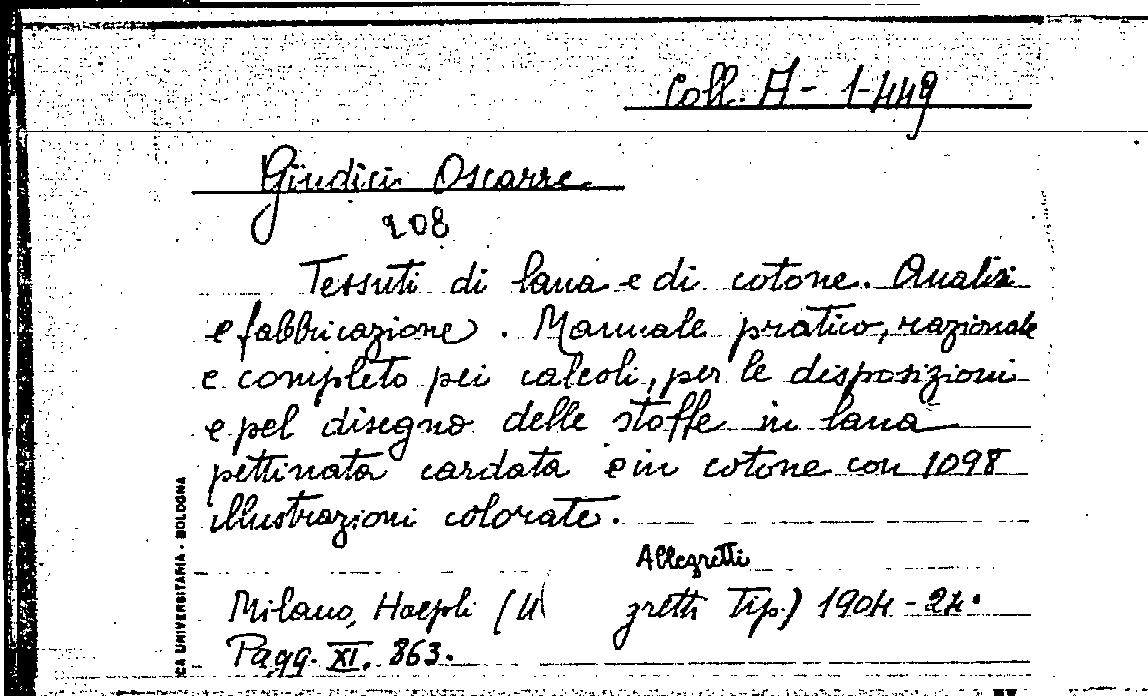 Coll. A - 1-449
Giudici Oscarre.
208
Tessuti di lana e di cotone. Analisi
e fabbricazione. Manuale pratico, razionale
e completo pei calcoli, per le disposizioni
e pel disegno delle stoffe in lana
pettinata cardata e in cotone con 1098
illustrazioni colorate.
Allegretti
Milano, Hoepli ( gretti Tip.) 1904 - 24°
Pagg. XI, 863.
CA UNIVERSITARIA - BOLOGNA